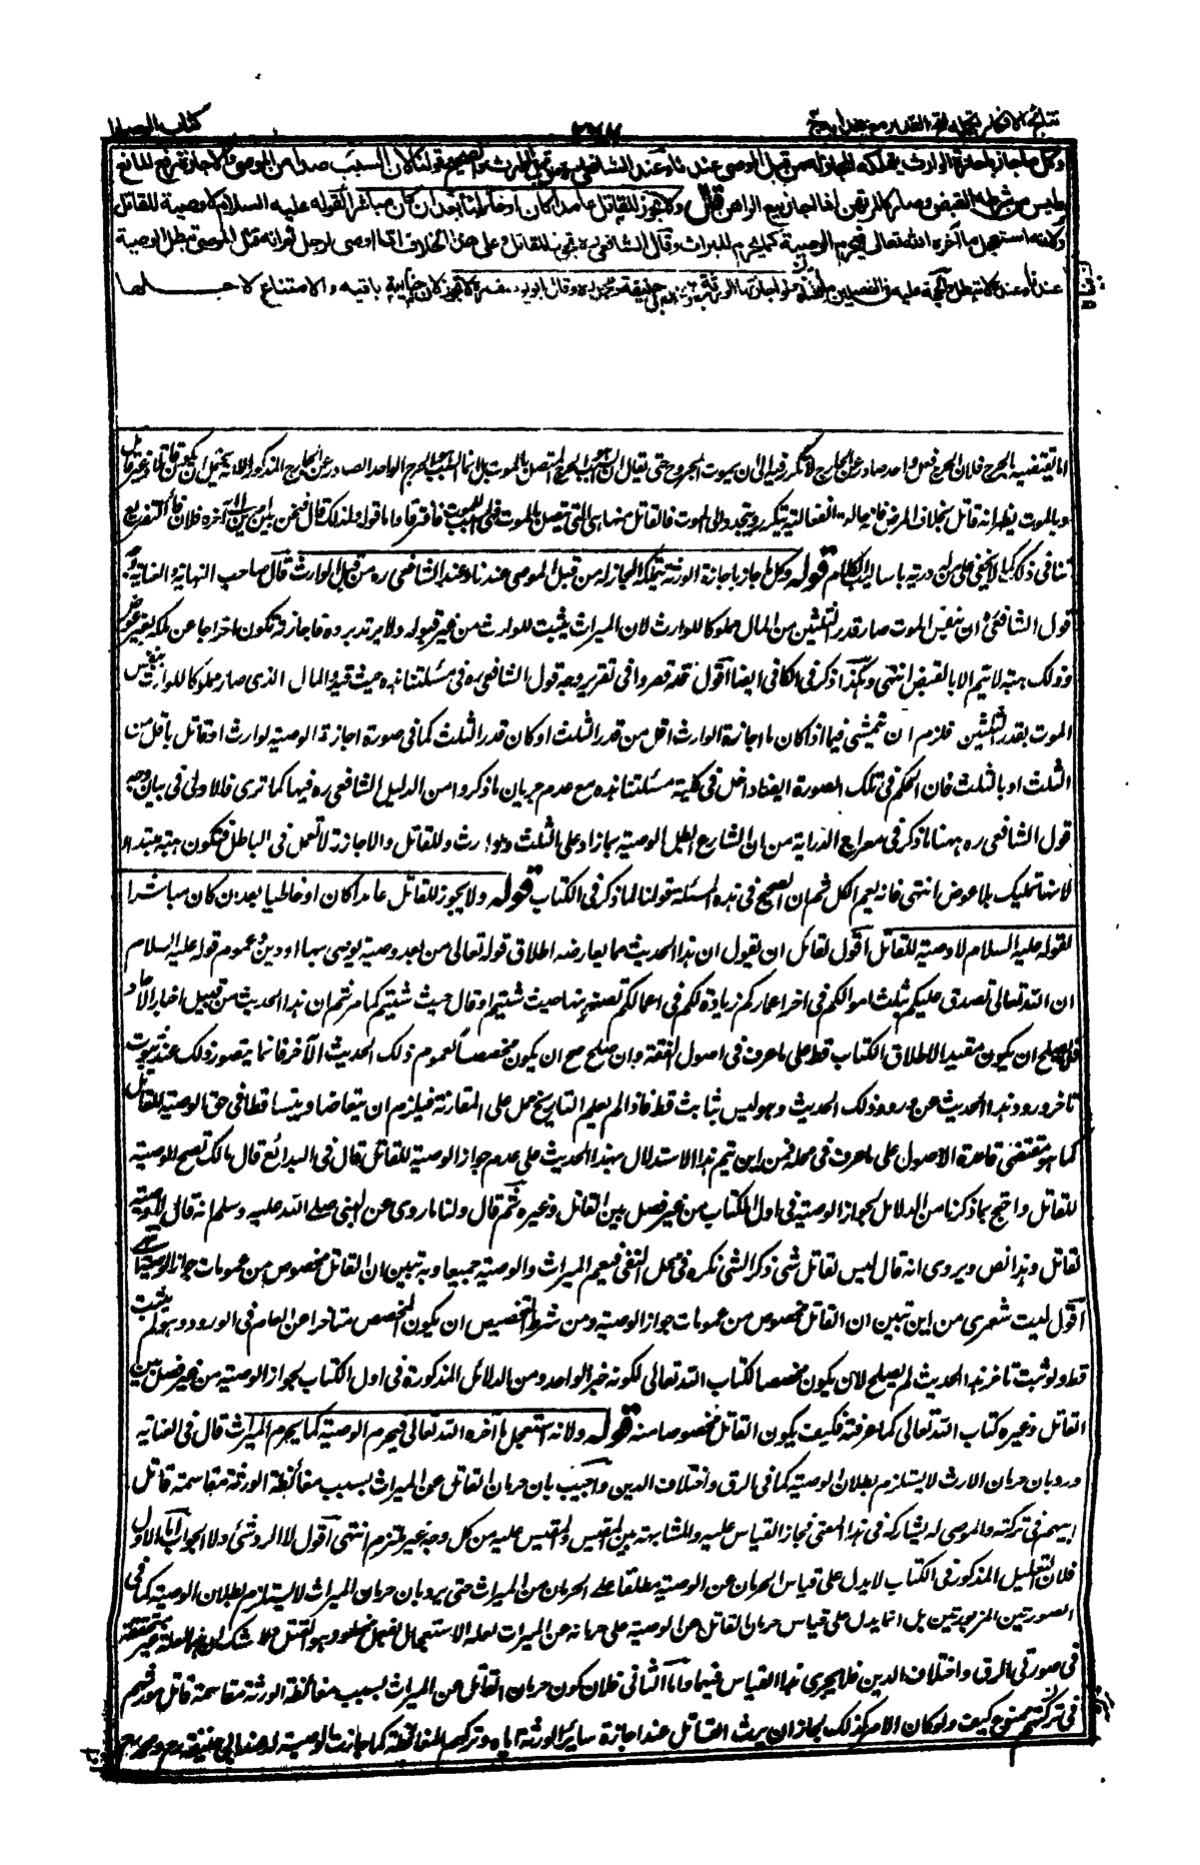 كتاب الوصايا
وكل ما جاز باجازة الوارث يتملكه المجاز له من قبل الموصى عندنا وعند الشافعى من قبل الوارث والصحيح قولنا لان السبب صدر من الموصى والاجازة رفع المانع
وليس من شرطه القبض وصار كالمرتهن اذا اجاز بيع الراهن قال ولا يجوز للقاتل عامدا كان او خاطئا بعد ان كان مباشرا لقوله عليه السلام لا وصية للقاتل
ولانه استعجل ما اخره الله تعالى فيحرم الوصية كما يحرم الميراث وقال الشافعى ره تجوز للقاتل وعلى هذا الخلاف اذا اوصى لرجل ثم انه قتل الموصى تبطل الوصية
عندنا وعنده لا تبطل والحجة عليه فى الفصلين ما بيناه ولو اجازتها الورثة جاز عند ابى حنيفة ومحمد ره وقال ابو يوسف ره لا تجوز لان جنايته باقيه والامتناع لاجلها
اما يقتضيه الجرح فلان الجرح فعل واحد صادر عن الجارح لا تكرر فيه الى ان يموت المجروح حتى يقال ان
وبالموت يظهر انه قاتل بخلاف المرض
تنافى ذلك كما لا يخفى على من له دربة باساليب الكلام قوله وكل ما جاز باجازة الورثة يتملكه المجاز له من قبل الموصى عندنا وعند الشافعى ره من قبل الوارث قال صاحب النهاية والعناية وجه
قول الشافعى ان بنفس الموت صار قدر الثلثين من المال مملوكا للوارث لان الميراث يثبت للوارث من غير قبوله ولا يرتد برده فاجازته تكون اخراجا عن ملكه بغير عوض
وذلك هبة لا تتم الا بالقبض انتهى وهكذا ذكر فى الكافى ايضا اقول قد قصروا فى تقرير وجه قول الشافعى ره فى مسئلتنا هذه حيث قيدوا المال الذى صار مملوكا للوارث بنفس
الموت بقدر الثلثين فلزم ان لا يتمشى فيما اذا كان ما اجازه الوارث اقل من قدر الثلث او كان قدر الثلث كما فى صورة اجازة الوصية لوارث او قاتل باقل من
الثلث او بالثلث فان الحكم فى تلك الصورة ايضا داخل فى كلية مسئلتنا هذه مع عدم جريان ما ذكروا من الدليل للشافعى ره فيها كما ترى فالاولى فى بيان وجه
قول الشافعى ره ههنا ما ذكر فى معراج الدراية من ان الشارع ابطل الوصية بما زاد على الثلث وللوارث وللقاتل والاجازة لا تعمل فى الباطل فتكون هبة مبتدأة
لانها تمليك بلا عوض انتهى فانه يعم الكل ثم ان الصحيح فى هذه المسئلة قولنا لما ذكر فى الكتاب قوله ولا يجوز للقاتل عامدا كان او خاطيا بعد ان كان مباشرا
لقوله عليه السلام لا وصية للقاتل اقول لقائل ان يقول ان هذا الحديث مما يعارضه اطلاق قوله تعالى من بعد وصية يوصى بها او دين وعموم قوله عليه السلام
ان الله تعالى تصدق عليكم بثلث اموالكم فى اخر اعماركم زيادة لكم فى اعمالكم تضعونها حيث شئتم او قال حيث شئتم كما مر ثم ان هذا الحديث من قبيل اخبار الاحاد
فلا يصلح ان يكون مقيدا لاطلاق الكتاب قط على ما عرف فى اصول الفقه وان صلح ان يكون مخصصا لعموم ذلك الحديث الآخر فانما يتصور ذلك عند ثبوت
تاخر ورود هذا الحديث عن ورود ذلك الحديث وهو ليس بثابت قط فاذا لم يعلم التاريخ حمل على المقارنة فيلزم ان يتعارضا ويتساقطا فى حق الوصية للقاتل
كما هو مقتضى قاعدة الاصول على ما عرف فى محله فمن اين تم هذا الاستدلال بهذا الحديث على عدم جواز الوصية للقاتل قال فى البدائع قال مالك تصح الوصية
للقاتل واحتج بما ذكرنا من الدلائل لجواز الوصية فى اول الكتاب من غير فصل بين القاتل وغيره ثم قال ولنا ما روى عن النبى صلى الله عليه وسلم انه قال لا وصية
لقاتل وهذا نص ويروى انه قال ليس لقاتل شئ ذكر الشئ نكرة فى محل النفى فيعم الميراث والوصية جميعا وبه تبين ان القاتل مخصوص من عمومات جواز الوصية انتهى
اقول ليت شعرى من اين تبين ان القاتل مخصوص من عمومات جواز الوصية ومن شرط التخصيص ان يكون المخصص متاخرا عن العام فى الورود وهو لم يثبت
قط ولو ثبت تاخر هذا الحديث لم يصلح لان يكون مخصصا لكتاب الله تعالى لكونه خبر الواحد ومن الدلائل المذكورة فى اول الكتاب لجواز الوصية من غير فصل بين
القاتل وغيره كتاب الله تعالى كما عرفته فكيف يكون القاتل مخصوصا منه قوله ولانه استعجل ما اخره الله تعالى فيحرم الوصية كما يحرم الميراث قال فى العناية
ورد بان حرمان الارث لا يستلزم بطلان الوصية كما فى الرق واختلاف الدين واجيب بان حرمان القاتل عن الميراث بسبب مغايظة الورثة مقاسمة قاتل
ابيهم فى تركته والموصى له يشاركه فى هذا المعنى فجاز القياس عليه والمشابهة بين المقيس والمقيس عليه من كل وجه غير ملتزم انتهى اقول لا الرد شئ ولا الجواب اما الاول
فلان التعليل المذكور فى الكتاب لا يدل على قياس الحرمان عن الوصية مطلقا على الحرمان من الميراث حتى يرد بان حرمان الميراث لا يستلزم بطلان الوصية كما فى
الصورتين المزبورتين بل انما يدل على قياس حرمان القاتل عن الوصية على حرمانه عن الميراث لعلة الاستعجال بفعل محظور وهو القتل ولا شك ان هذه العلة غير متحققة
فى صورتى الرق واختلاف الدين فلا يجرى هذا القياس فيهما واما الثانى فلان كون حرمان القاتل عن الميراث بسبب مغايظة الورثة مقاسمة قاتل مورثهم
فى تركته ممنوع كيف ولو كان الامر كذلك لجاز ان يرث القاتل عند اجازة سائر الورثة اياه وتركهم المغايظة كما جازت الوصية له عند ابى حنيفة ره ومحمد ره